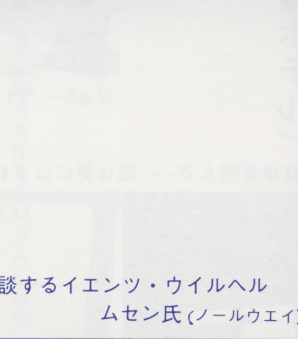 談するイエンツ・ウイルヘル
ムセン氏(ノールウエイ)